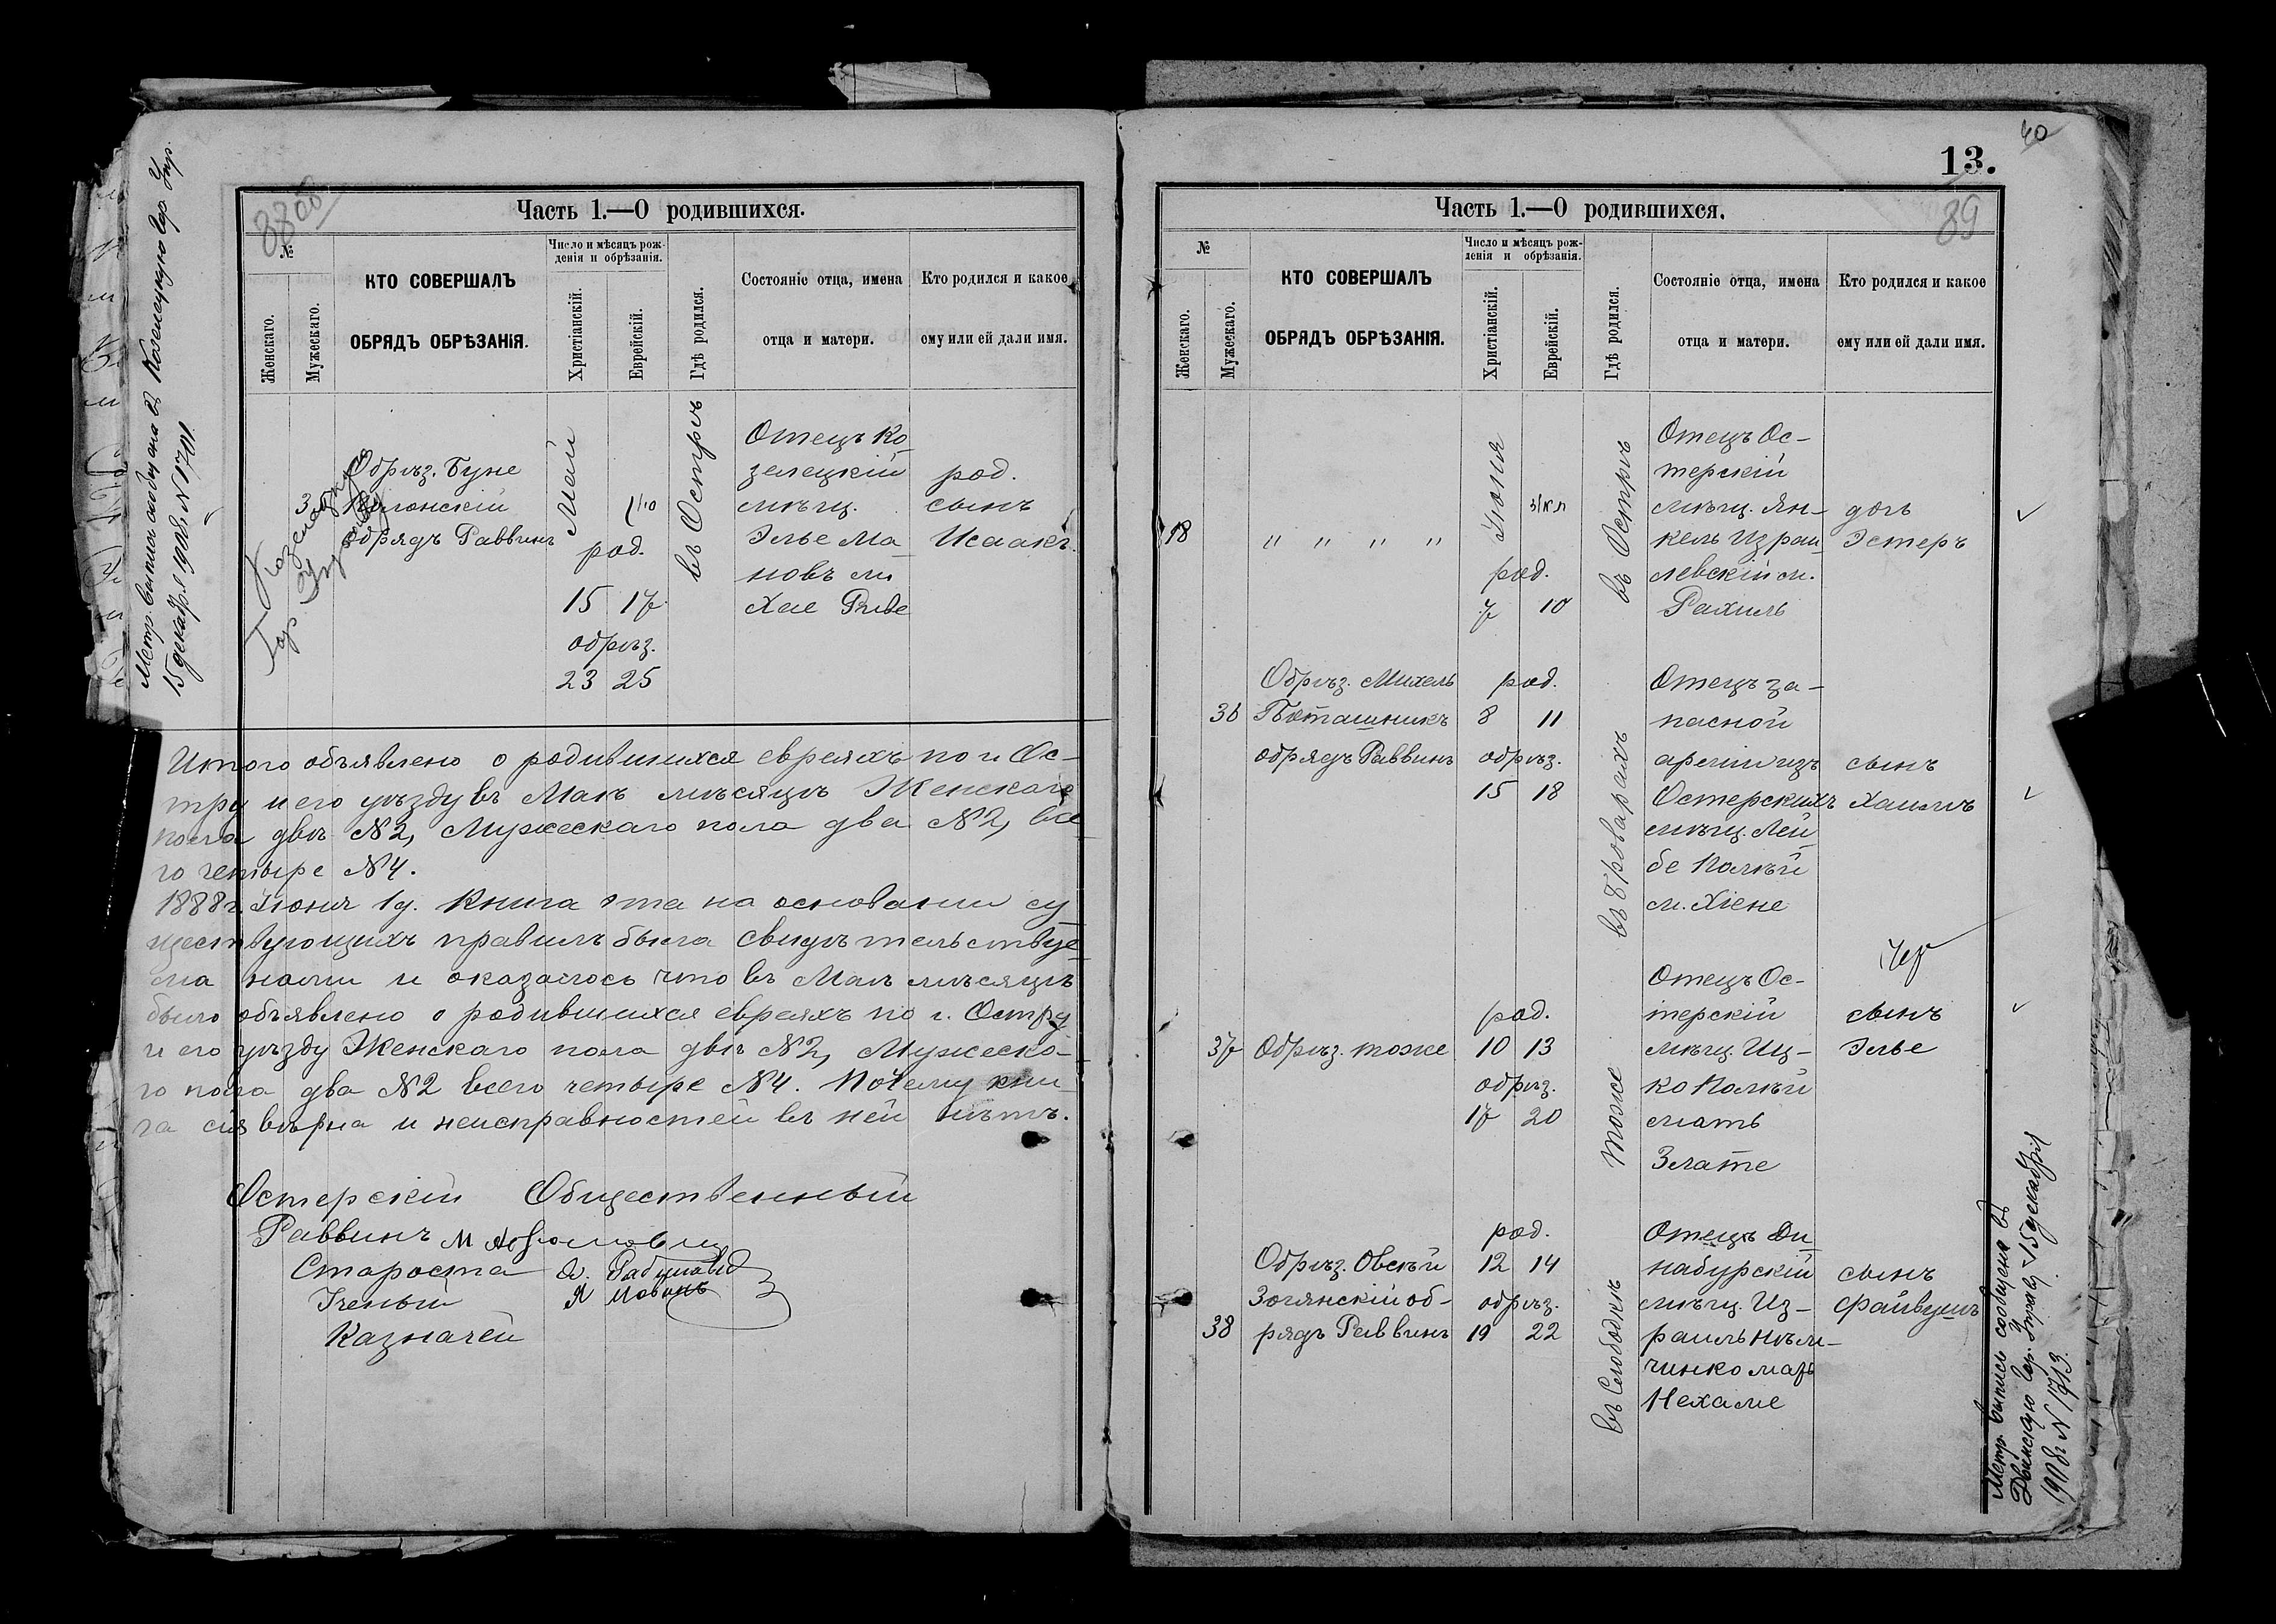 Метр. выпись сообщена въ Козелецкую Гор. Упр.
15 декабр. 1908 г. N 1701.
8800
Часть 1.—О родившихся.
№
Женскаго.
Мужескаго.
КТО СОВЕРШАЛЪ
ОБРЯДЪ ОБРѢЗАНІЯ.
Число и мѣсяцъ рож-
денія и обрѣзанія.
Христіанскій.
Еврейскій.
Гдѣ родился.
Состояніе отца, имена
отца и матери.
Кто родился и какое
ему или ей дали имя.
Обрѣз. Буне
обрядъ Раввинъ
Май
род.
15 17
обрѣз.
23 25
въ Острѣ
Отецъ Ко-
зелецкій
мѣщ.
Элье Ма-
новъ м
Хае Риве
род.
сынъ
Исаакъ
Итого объявлено о родившихся евреяхъ по г. Ос-
тру и его уѣзду въ Маѣ мѣсяцѣ Женскаго
пола двѣ N2, Мужескаго пола два N2, все
го четыре N4.
1888 г. Іюня 1 д. Книга эта на основаніи су-
ществующихъ правилъ была свидѣтельствуе-
ма нами и оказалось что въ Маѣ мѣсяцѣ
было объявлено о родившихся евреяхъ по г. Остру
и его уѣзду Женскаго пола двѣ N2, Мужеска-
го пола два N2 всего четыре N4. Почему кни-
га сія вѣрна и неисправностей въ ней нѣтъ.
Остерскій Общественный
Раввинъ М
Староста
Ученый
Казначей
40
13.
89
Часть 1.—О родившихся.
№
Женскаго.
Мужескаго.
КТО СОВЕРШАЛЪ
ОБРЯДЪ ОБРѢЗАНІЯ.
Число и мѣсяцъ рож-
денія и обрѣзанія.
Христіанскій.
Еврейскій.
Гдѣ родился.
Состояніе отца, имена
отца и матери.
Кто родился и какое
ему или ей дали имя.
18
" " " "
Іюня
род.
7 10
въ Острѣ
Отецъ Ос-
терскій
мѣщ. Ян-
кель Израи-
левскій м.
Рахиль
доч
Эстеръ
36
Обрѣз. Михель
Поташникъ
обрядъ Раввинъ
род.
8 11
обрѣз.
15 18
въ Броварахъ
Отецъ за-
пасной
арміи изъ
Остерскихъ
мѣщ. Лей-
бе Палѣй
м. Хіене
сынъ
Хаимъ
37
Обрѣз. тоже
род.
10 13
обрѣз.
17 20
тоже
Отецъ Ос-
терскій
мѣщ. Иц-
ко Палѣй
мать
Злате
сынъ
Элье
38
Обрѣз. Овсѣй
Золянскій об-
рядъ Раввинъ
род.
12 14
обрѣз.
19 22
въ Слободкѣ
Отецъ Ди-
набурскій
мѣщ. Из-
раиль Нѣм-
чинко мать
Нехаме
сынъ
Файвушъ
Метр. выпись сообщена въ
Двинскую Гор. Управу 15 декабря
1908 г. N 1713.